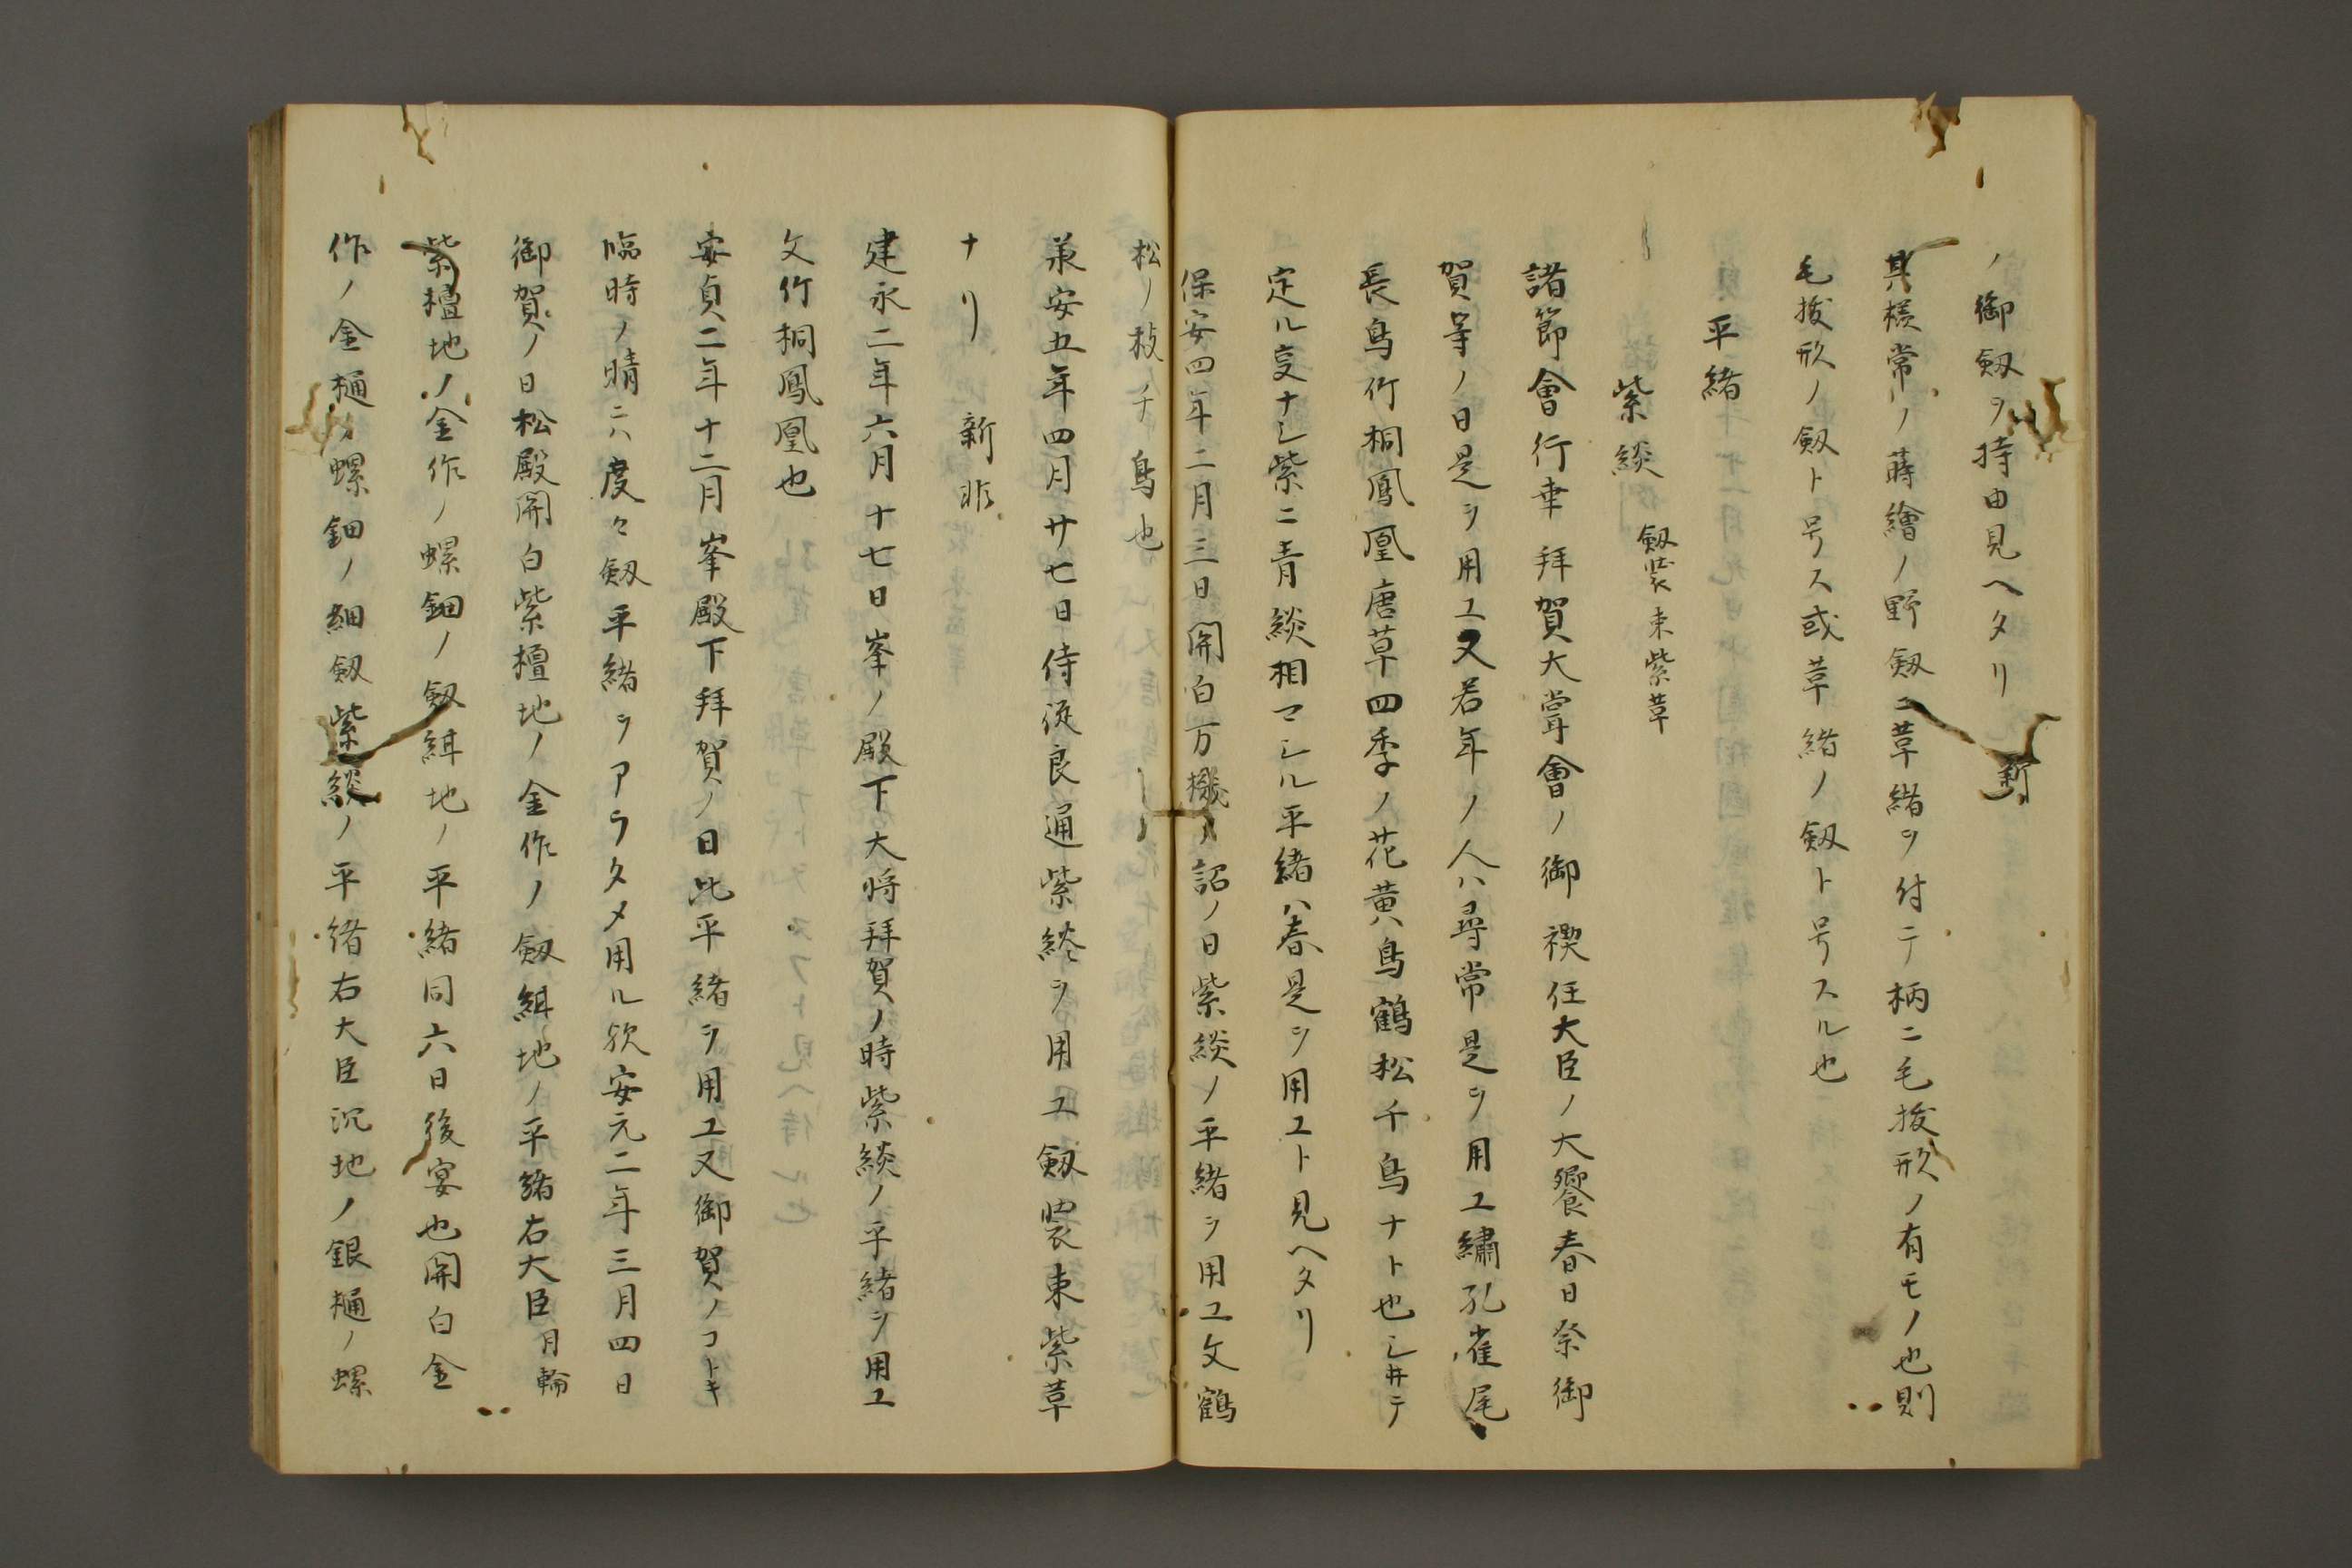 ノ御釼ヲ持由見ヘタリ 新
其樣常ノ蒔繪ノ野釼ニ草緒ヲ付テ柄ニ毛拔形ノ有モノ也則
毛拔形ノ釼ト号ス或草緒ノ釼ト号スル也
平緒
紫緂 釼装束紫草
諸節會行幸拜賀大嘗會ノ御禊任大臣ノ大饗春日祭御
賀等ノ日是ヲ用ユ又若年ノ人ハ尋常是ヲ用ユ繡孔雀尾
長鳥竹桐鳳凰唐草四季ノ花黄鳥鶴松千鳥ナト也シ井テ
定ル㕝ナシ紫ニ青緂相マシル平緒ハ春是ヲ用ユト見ヘタリ
保安四年二月三日関白万機ノ詔ノ日紫緂ノ平緒ヲ用ユ文鶴
松ノ枝千鳥也
承安五年四月廿七日侍従良通紫緂ヲ用ユ釼装束紫草
ナリ 新非
建永二年六月十七日峯ノ殿下大将拜賀ノ時紫緂ノ平緒ヲ用ユ
文竹桐鳳凰也
安貞二年十二月峯殿下拜賀ノ日此平緒ヲ用ユ又御賀ノコトキ
臨時ノ晴ニハ度々釼平緒ヲアラタメ用ル欤安元二年三月四日
御賀ノ日松殿関白紫檀地ノ金作ノ釼紺地ノ平緒右大臣月輪
紫檀地ノ金作ノ螺鈿ノ釼紺地ノ平緒同六日後宴也関白金
作ノ金樋ノ螺鈿ノ細釼紫緂ノ平緒右大臣沉地ノ銀樋ノ螺